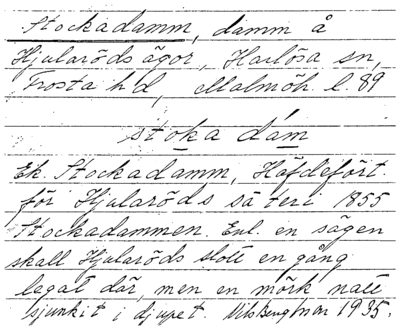 Stockadamm, damm å
Hjularöds ägor, Harlösa sn,
Frosta hd, Malmöh. l. 89
stoka dam
Ek. Stockadamm, Häfdefört.
för Hjularöds säteri 1855
Stockadammen. Enl. en sägen
skall Hjularöds slott en gång
legat där, men en mörk natt
sjunkit i djupet. Nils Bengtson 1935.